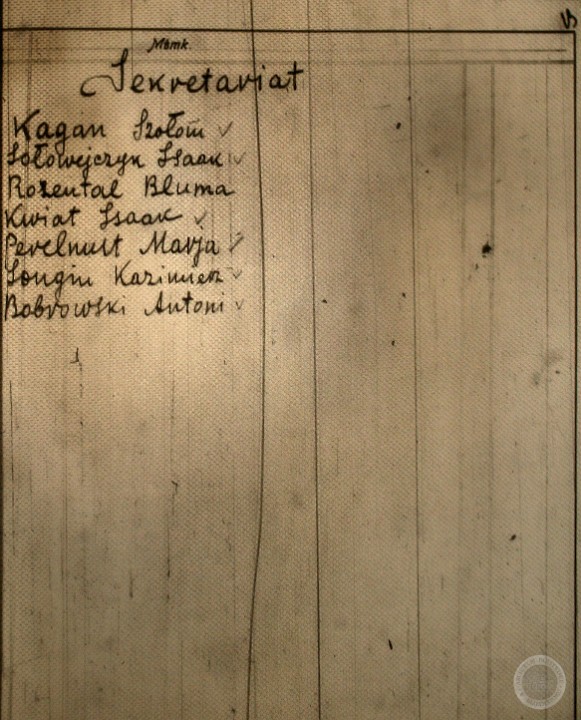 Mėmk.
Sekretariat
Kagan Szołom ✓
Sołowejczyk Isaak ✓
Rozental Bluma
Kwiat Isaak ✓
Perelmut Marja ✓
Songin Kazimierz ✓
Bobrowski Antoni ✓